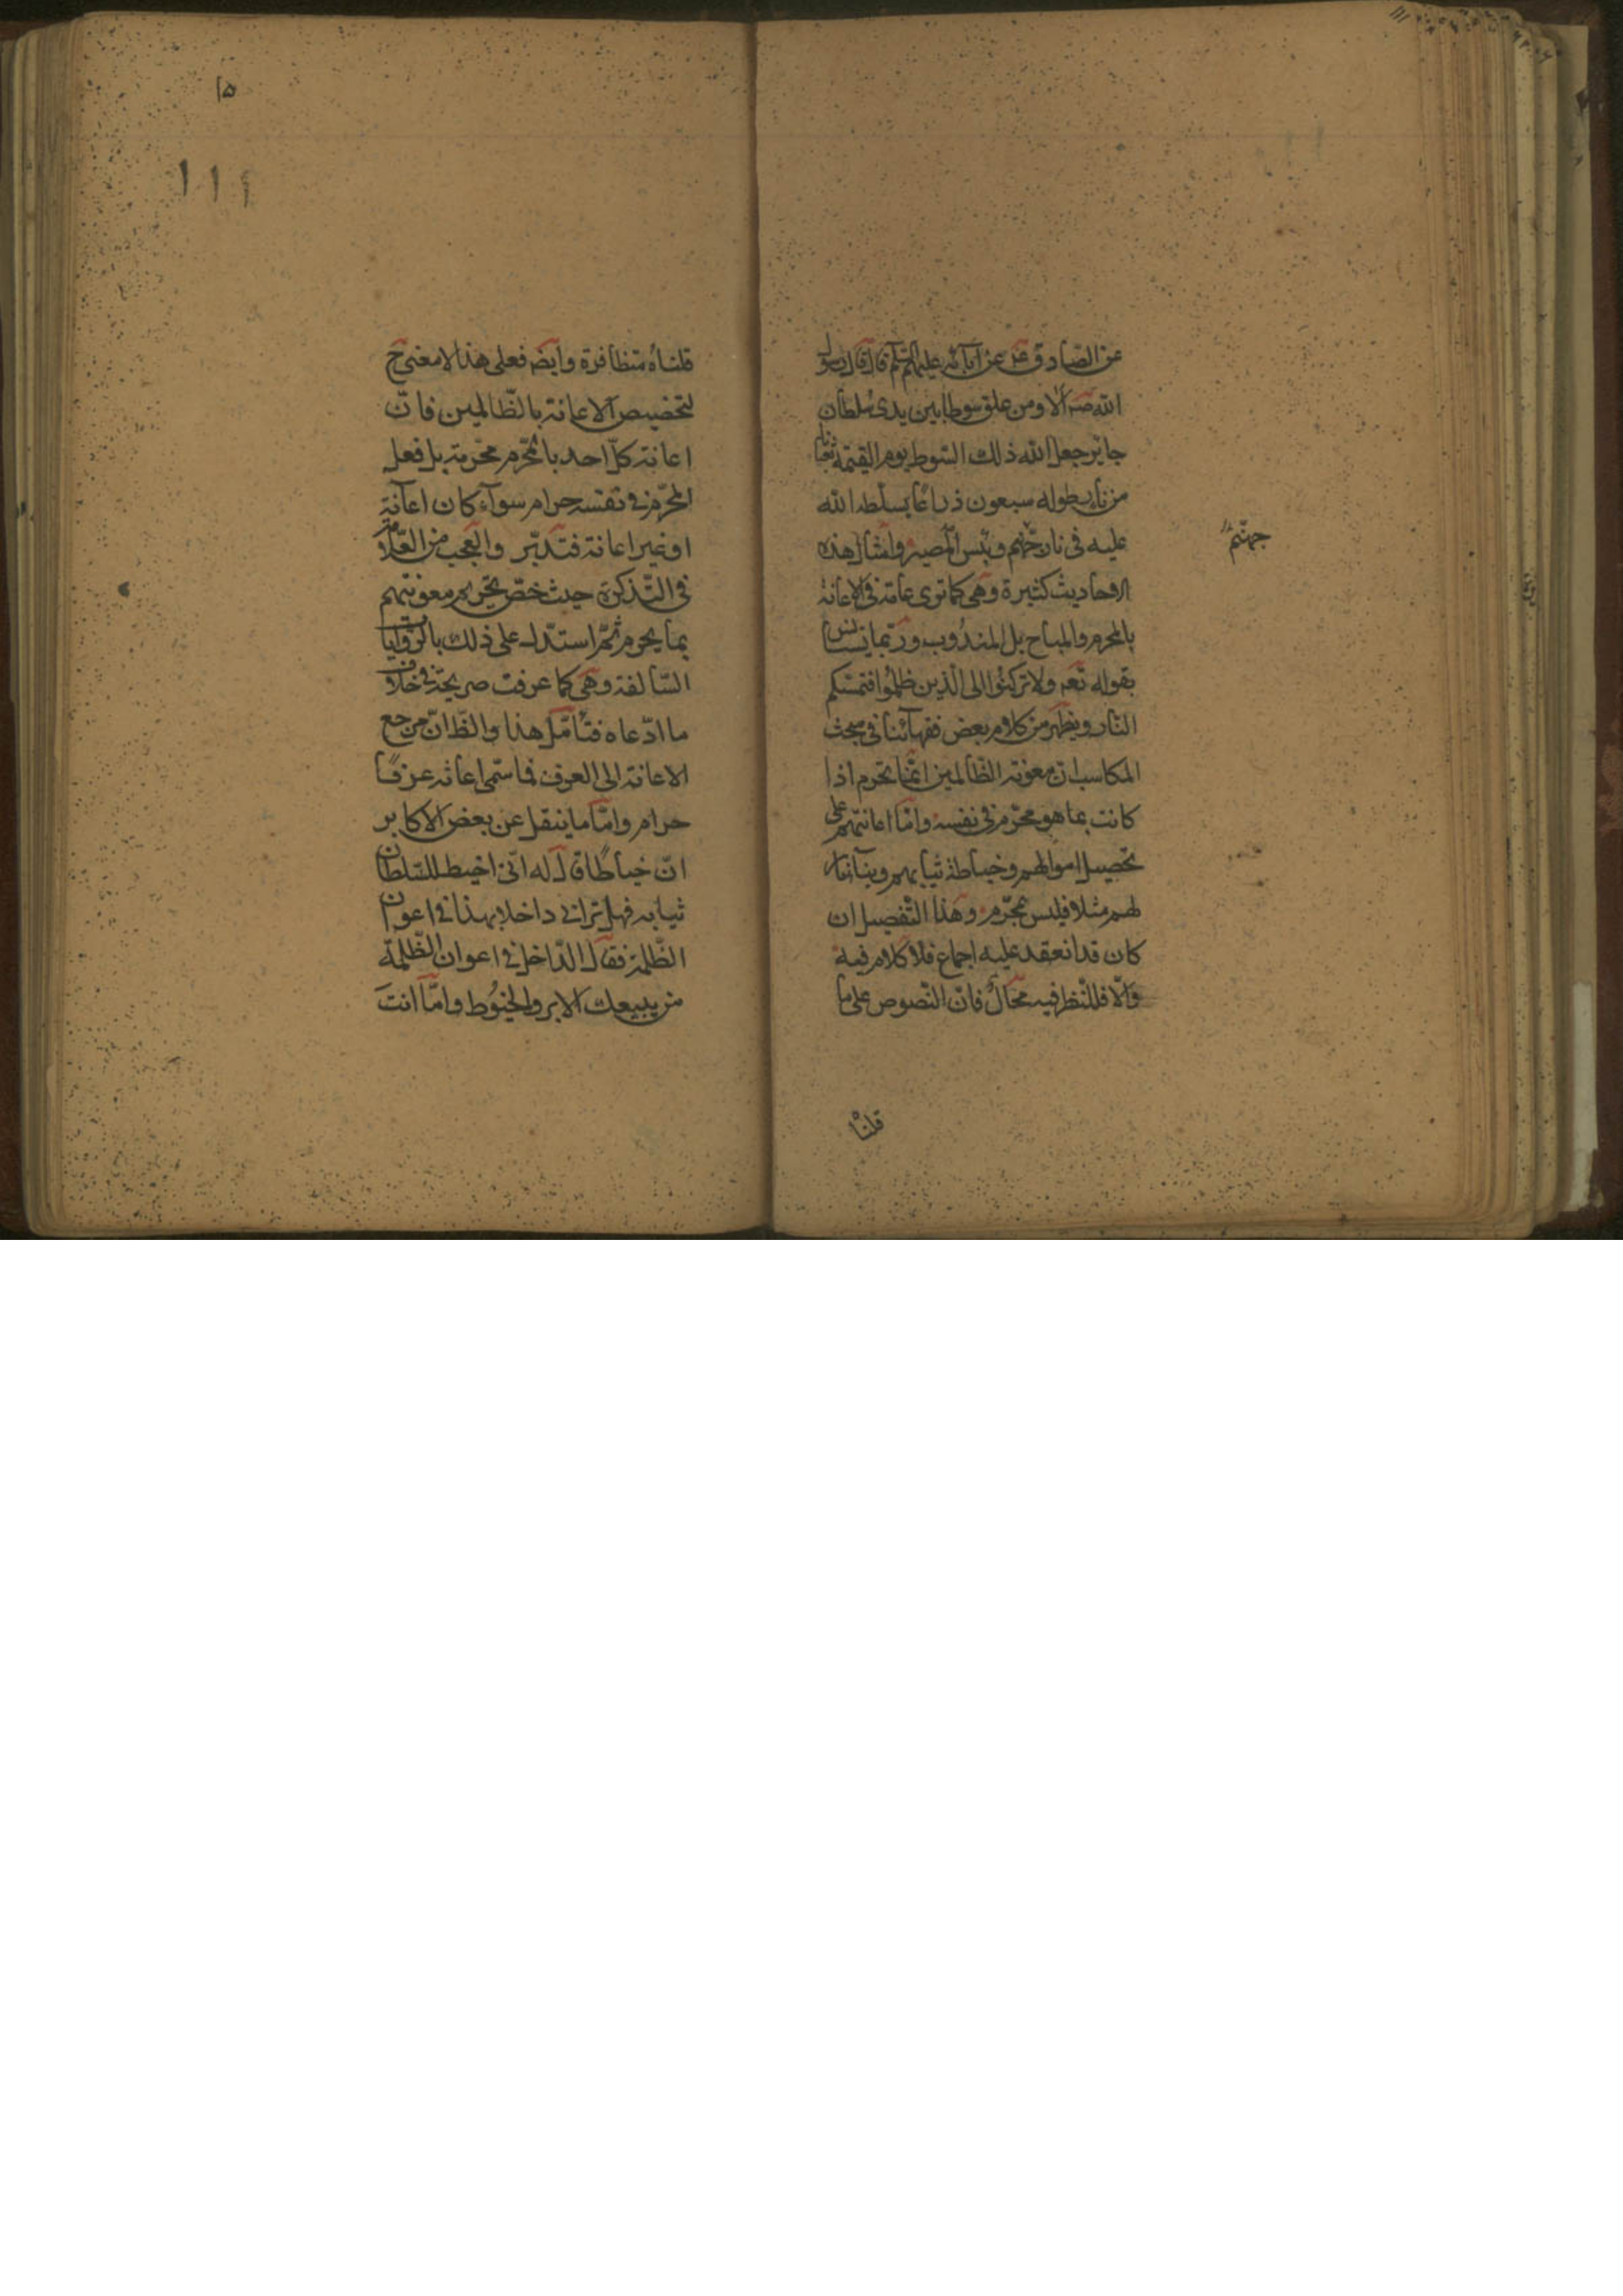 عن الصّادق عن آبائه عليهم السّلم قال قال رسول
الله صه ألا ومن علق سوطا بين يدى سلطان
جاير جعل الله ذلك السّوط يوم القيمة ثعبانا
من نار طوله سبعون ذراعًا يسلطه الله
عليه فى نار جهنم وبئس المصير وامثال هذه
جهنّم
الاحاديث كثيرة وهى كما ترى عامّة فى الاعانة
بالمحرم والمباح بل المندُوب وربّما
بقوله تعه ولا تركنُوا الى الّذين ظلمُوا فتمسّكم
النّار ويظهر من كلام بعض فقهآئنا فى مبحث
المكاسب ان معونة الظّالمين انّما تحرم اذا
كانت بما هو محرّم فى نفسه وامّا اعانتهم على
تحصيل اموالهم وخياطة ثيابهم وبنآء
لهم مثلا فليس بمحرّم وهذا التّفصيل ان
كان قد انعقد عليه اجماع فلا كلام فيه
والّا فللنّظر فيه مجالٌ فانّ النّصوص على ما
قلناه
۱۵
۱۱۱
قلناهُ متظافرة وايضه فعلى هذا لا معنى ح
لتخصيص الاعانة بالظّالمين فانّ
اعانة كلّ احد بالمحّرم محّرمة بل فعل
المحّرم فى نفسه حرام سوآء كان اعانة
او غير اعانة فتدبّر والعجب من العلّامة
فى التّذكرة حيث خصّ تحريم معونتهم
بما يحرم ثمّ استدلّ على ذلك بالرّوايات
السّالفة وهى كما عرفت صريحة فى خلاف
ما ادّعاه فتأمّل هذا والظّ انّ مرجع
الاعانة الى العرف فما سمّى اعانة عرفًا
حرام وامّا ما ينقل عن بعض الاكابر
انّ خياطًا قال له انّى اخيط للسّلطان
ثيابه فهل ترانى داخلا بهذا فى اعوان
الظّلمة فقال الدّاخل فى اعوان الظّلمة
من يبيعك الابر والخيُوط وامّا انت